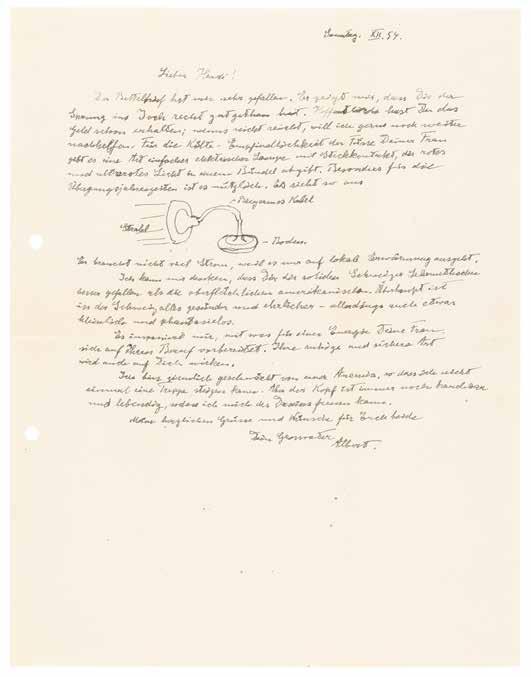 Samstag. XII. 54.
Lieber Hardi!
Der Bettelbrief hat mir sehr gefallen. Er zeigt mir, dass Dir der
Sprung ins Joch recht gut gethan hat. Hoffentlich hast Du das
Geld schon erhalten; wenns nicht reicht, will ich gerne noch weiter
nachhelfen. Für die Kälte-Empfindlichkeit der Füsse Deiner Frau
gebt es eine Art einfacher elektrischer Lampe mit Steckkontakt, der rotes
und ultrarotes Licht in einem Bündel abgibt. Besonders für die
Übergangsjahreszeiten ist es nützlich. Es sieht so aus
Biegsames Kabel
Strahl
Boden.
Er braucht nicht viel Strom, weil es nur auf lokale Erwärmung ausgeht.
Ich kann mir denken, dass Dir die soliden Schweizer
besser gefallen als die oberflächlichen amerikanischen. Überhaupt ist
in der Schweiz alles gesünder und ehrlicher - allerdings auch etwas
kleinlich und phantasielos.
Es imponiert mir, mit was für einer Energie Deine Frau
sich auf Ihren Beruf vorbereitet. Ihre ruhige und sichere Art
wird auch auf Dich wirken.
Ich bin ziemlich geschwächt von einer Anemia, so dass ich nicht
einmal eine Treppe steigen kann. Nur der Kopf ist immer noch
und lebendig, sodass ich mich des Daseins freuen kann.
Meine herzlichen Grüsse und Wünsche für Euch beide
Dein Grossvater
Albert.